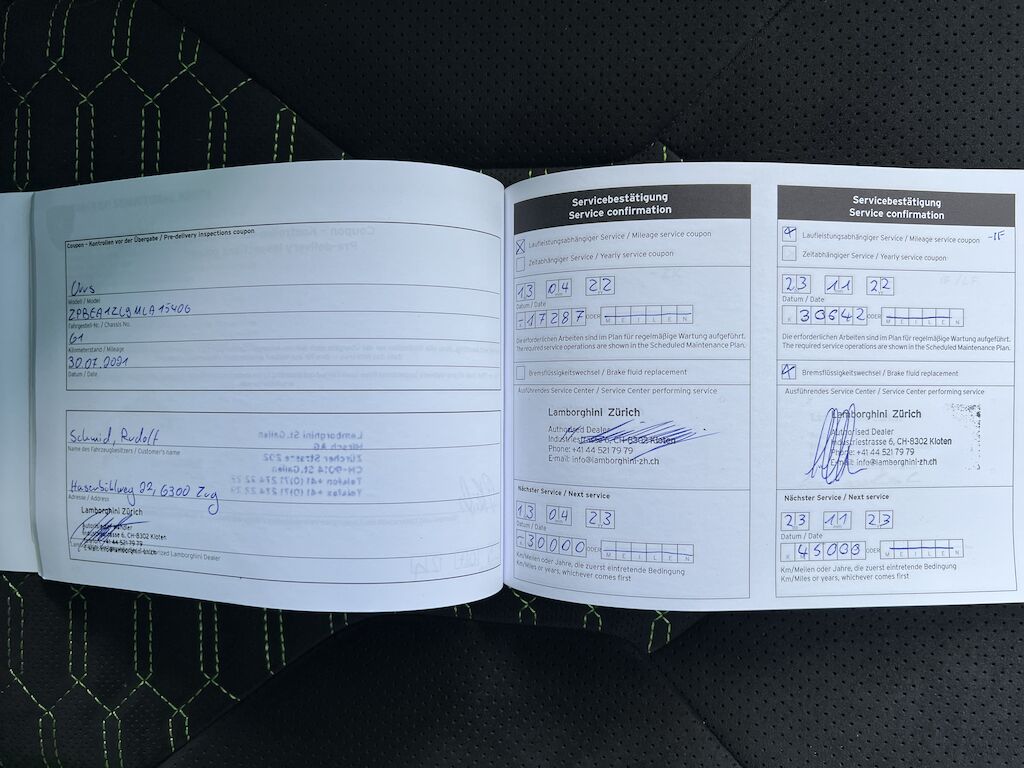 Coupon - Kontrollen vor der Übergabe / Pre-delivery inspections coupon
Urus
Modell / Model
ZPBEA1ZL9MLA15406
Fahrgestell-Nr. / Chassis No.
61
Kilometerstand / Mileage
30.07.2021
Datum / Date
Schmid, Rudolf
Name des Fahrzeugbesitzers / Customer's name
22, 6300 Zug
Adresse / Address
Lamborghini Zürich
Industriestrasse 6, CH-8302 Kloten
+41 44 521 79 79
Lamborghini Dealer
Lamborghini St.Gallen
Hirsch AG
Zürcher Strasse 202
CH-9014 St.Gallen
Servicebestätigung
Service confirmation
X Laufleistungsabhängiger Service / Mileage service coupon
Zeitabhängiger Service / Yearly service coupon
13 04 22
Datum / Date
17287 ODER MEILEN
Die erforderlichen Arbeiten sind im Plan für regelmäßige Wartung aufgeführt.
The required service operations are shown in the Scheduled Maintenance Plan.
Bremsflüssigkeitswechsel / Brake fluid replacement
Ausführendes Service Center / Service Center performing service
Lamborghini Zürich
Authorised Dealer
Industriestrasse 6, CH-8302 Kloten
Phone: +41 44 521 79 79
E-mail: info@lamborghini-zh.ch
Nächster Service / Next service
13 04 23
Datum / Date
30000 ODER MEILEN
Km/Meilen oder Jahre, die zuerst eintretende Bedingung
Km/Miles or years, whichever comes first
Servicebestätigung
Service confirmation
Laufleistungsabhängiger Service / Mileage service coupon
Zeitabhängiger Service / Yearly service coupon
23 11 22
Datum / Date
K 30642 ODER MEILEN
Die erforderlichen Arbeiten sind im Plan für regelmäßige Wartung aufgeführt.
The required service operations are shown in the Scheduled Maintenance Plan.
Bremsflüssigkeitswechsel / Brake fluid replacement
Ausführendes Service Center / Service Center performing service
Lamborghini Zürich
Authorised Dealer
Industriestrasse 6, CH-8302 Kloten
Phone: +41 44 521 79 79
E-mail: info@lamborghini-zh.ch
Nächster Service / Next service
23 11 23
Datum / Date
K 45000 ODER MEILEN
Km/Meilen oder Jahre, die zuerst eintretende Bedingung
Km/Miles or years, whichever comes first